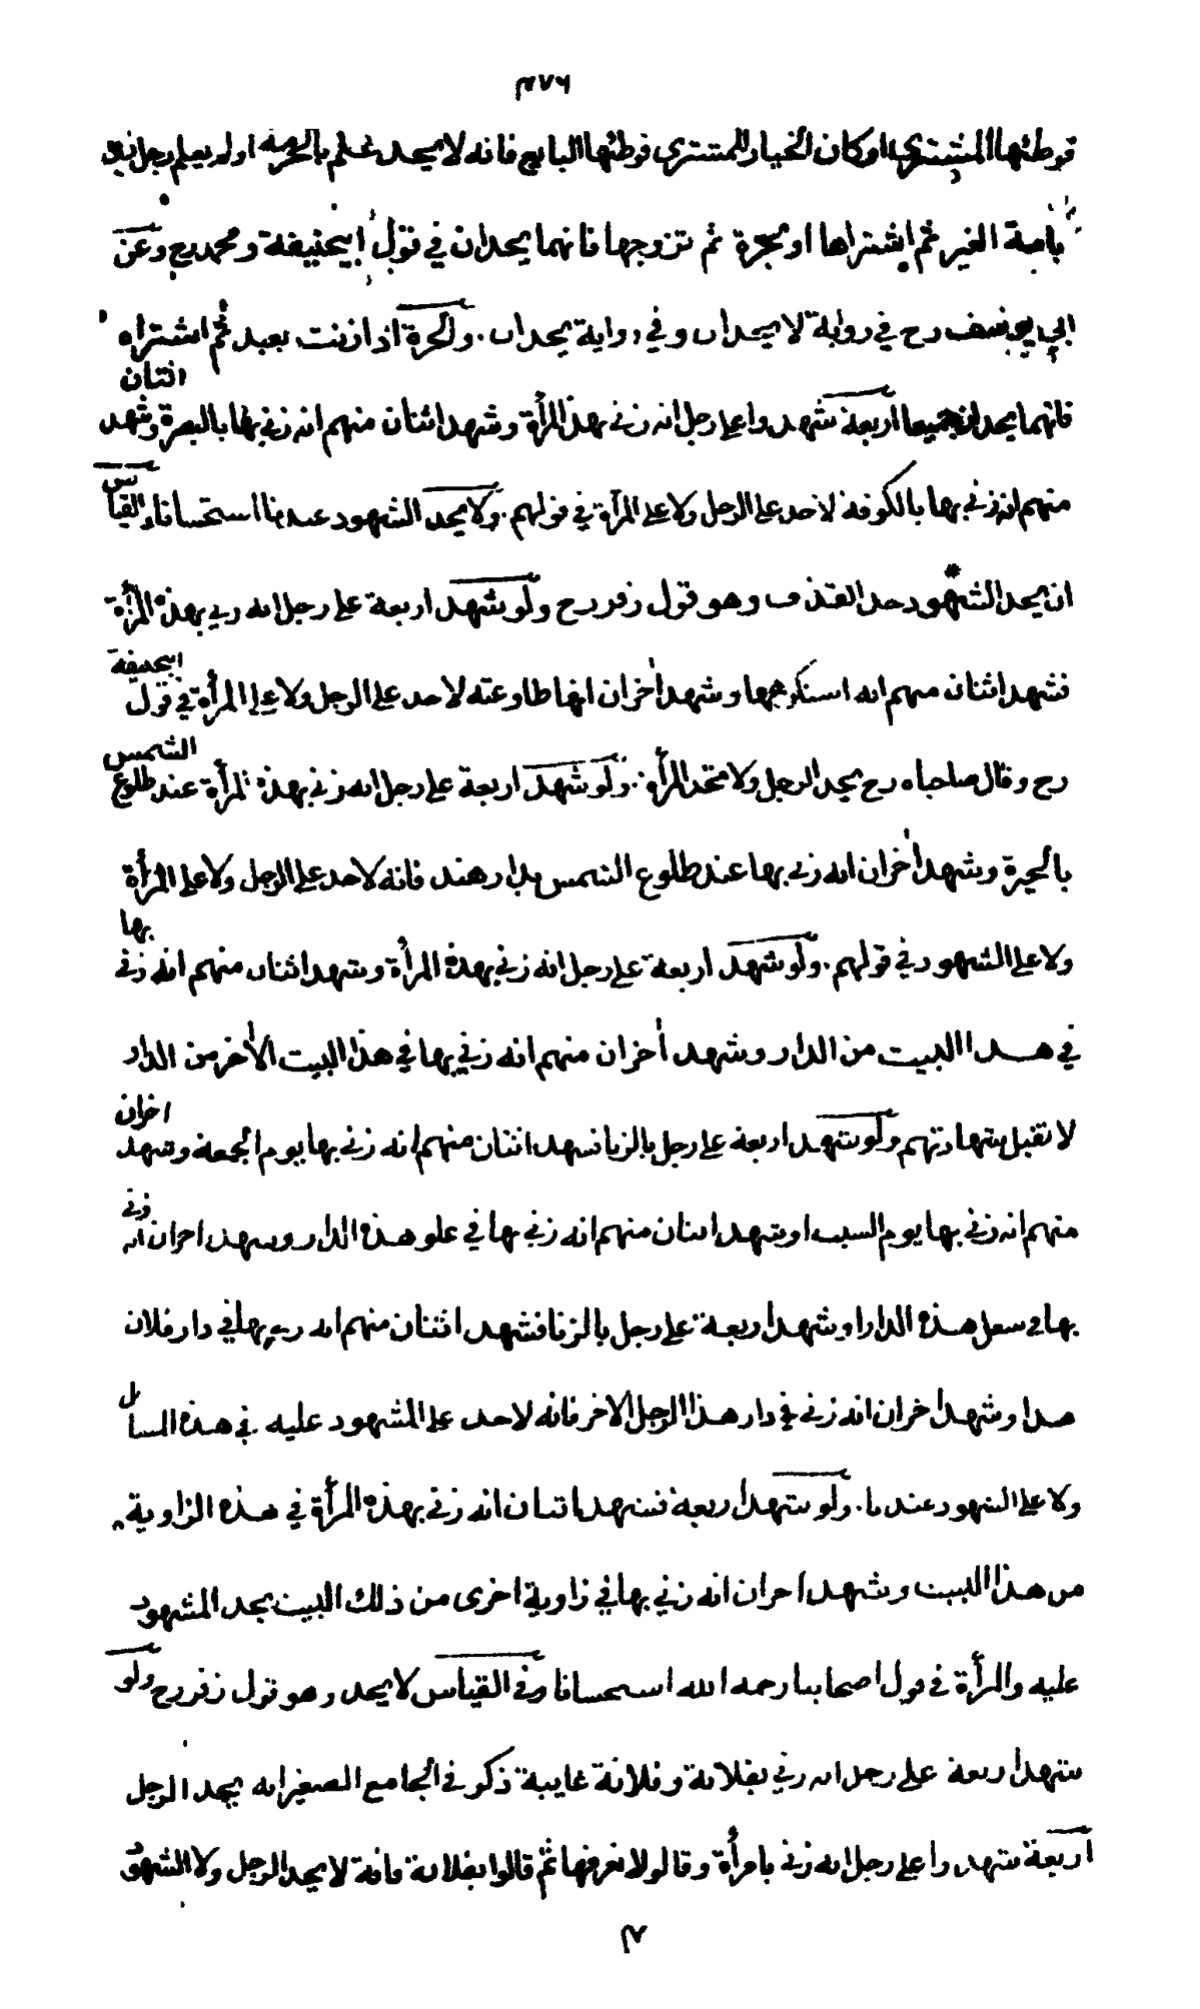 ٣٧٦
فوطئها المشتري اوكان الخيار للمشتري فوطئها البايع فانه لا يحد علم بالحرمة اولم يعلم رجل زنى
بامة الغير ثم اشتراها او بحرة ثم تزوجها فانهما يحدان في قول ابيحنيفة ومحمد رح وعن
ابي يوسف رح في رواية لا يحدان وفي رواية يحدان. والحرة اذا زنت بعبد ثم اشتراه
فانهما يحدان جميعا اربعة شهدوا على رجل انه زنى بهذه المرأة وشهد اثنان منهم انه زنى بها بالبصرة وشهد اثنان
منهم انه زنى بها بالكوفة لا حد على الرجل ولا على المرأة في قولهم. ولا يحد الشهود عندنا استحسانا والقياس
ان يحد الشهود حد القذف وهو قول زفر رح ولو شهد اربعة على رجل انه زنى بهذه المرأة
فشهد اثنان منهم انه استكرهها وشهد اخران انها طاوعته لا حد على الرجل ولا على المرأة في قول ابيحنيفة
رح وقال صاحباه رح يحد الرجل ولا تحد المرأة. ولو شهد اربعة على رجل انه زنى بهذه المرأة عند طلوع الشمس
بالحيرة وشهد اخران انه زنى بها عند طلوع الشمس بدار هند فانه لا حد على الرجل ولا على المرأة
ولا على الشهود في قولهم. ولو شهد اربعة على رجل انه زنى بهذه المرأة وشهد اثنان منهم انه زنى بها
في هذا البيت من الدار وشهد اخران منهم انه زنى بها في هذا البيت الاخر من الدار
لا تقبل شهادتهم ولو شهد اربعة على رجل بالزنا فشهد اثنان منهم انه زنى بها يوم الجمعة وشهد اخران
منهم انه زنى بها يوم السبت او شهد اثنان منهم انه زنى بها في علو هذه الدار وشهد اخران انه زنى
بها في سفل هذه الدار او شهد اربعة على رجل بالزنا فشهد اثنان منهم انه زنى بها في دار فلان
هذا وشهد اخران انه زنى في دار هذا الرجل الاخر فانه لا حد على المشهود عليه في هذه المسائل
ولا على الشهود عندنا. ولو شهد اربعة فشهد اثنان انه زنى بهذه المرأة في هذه الزاوية
من هذا البيت وشهد اخران انه زنى بها في زاوية اخرى من ذلك البيت يحد المشهود
عليه والمرأة في قول اصحابنا رحمه الله استحسانا وفي القياس لا يحد وهو قول زفر رح ولو
شهد اربعة على رجل انه زنى بفلانة وفلانة غايبة ذكر في الجامع الصغير انه يحد الرجل
اربعة شهدوا على رجل انه زنى بامرأة وقالوا لا نعرفها ثم قالوا بفلانة فانه لا يحد الرجل ولا الشهود